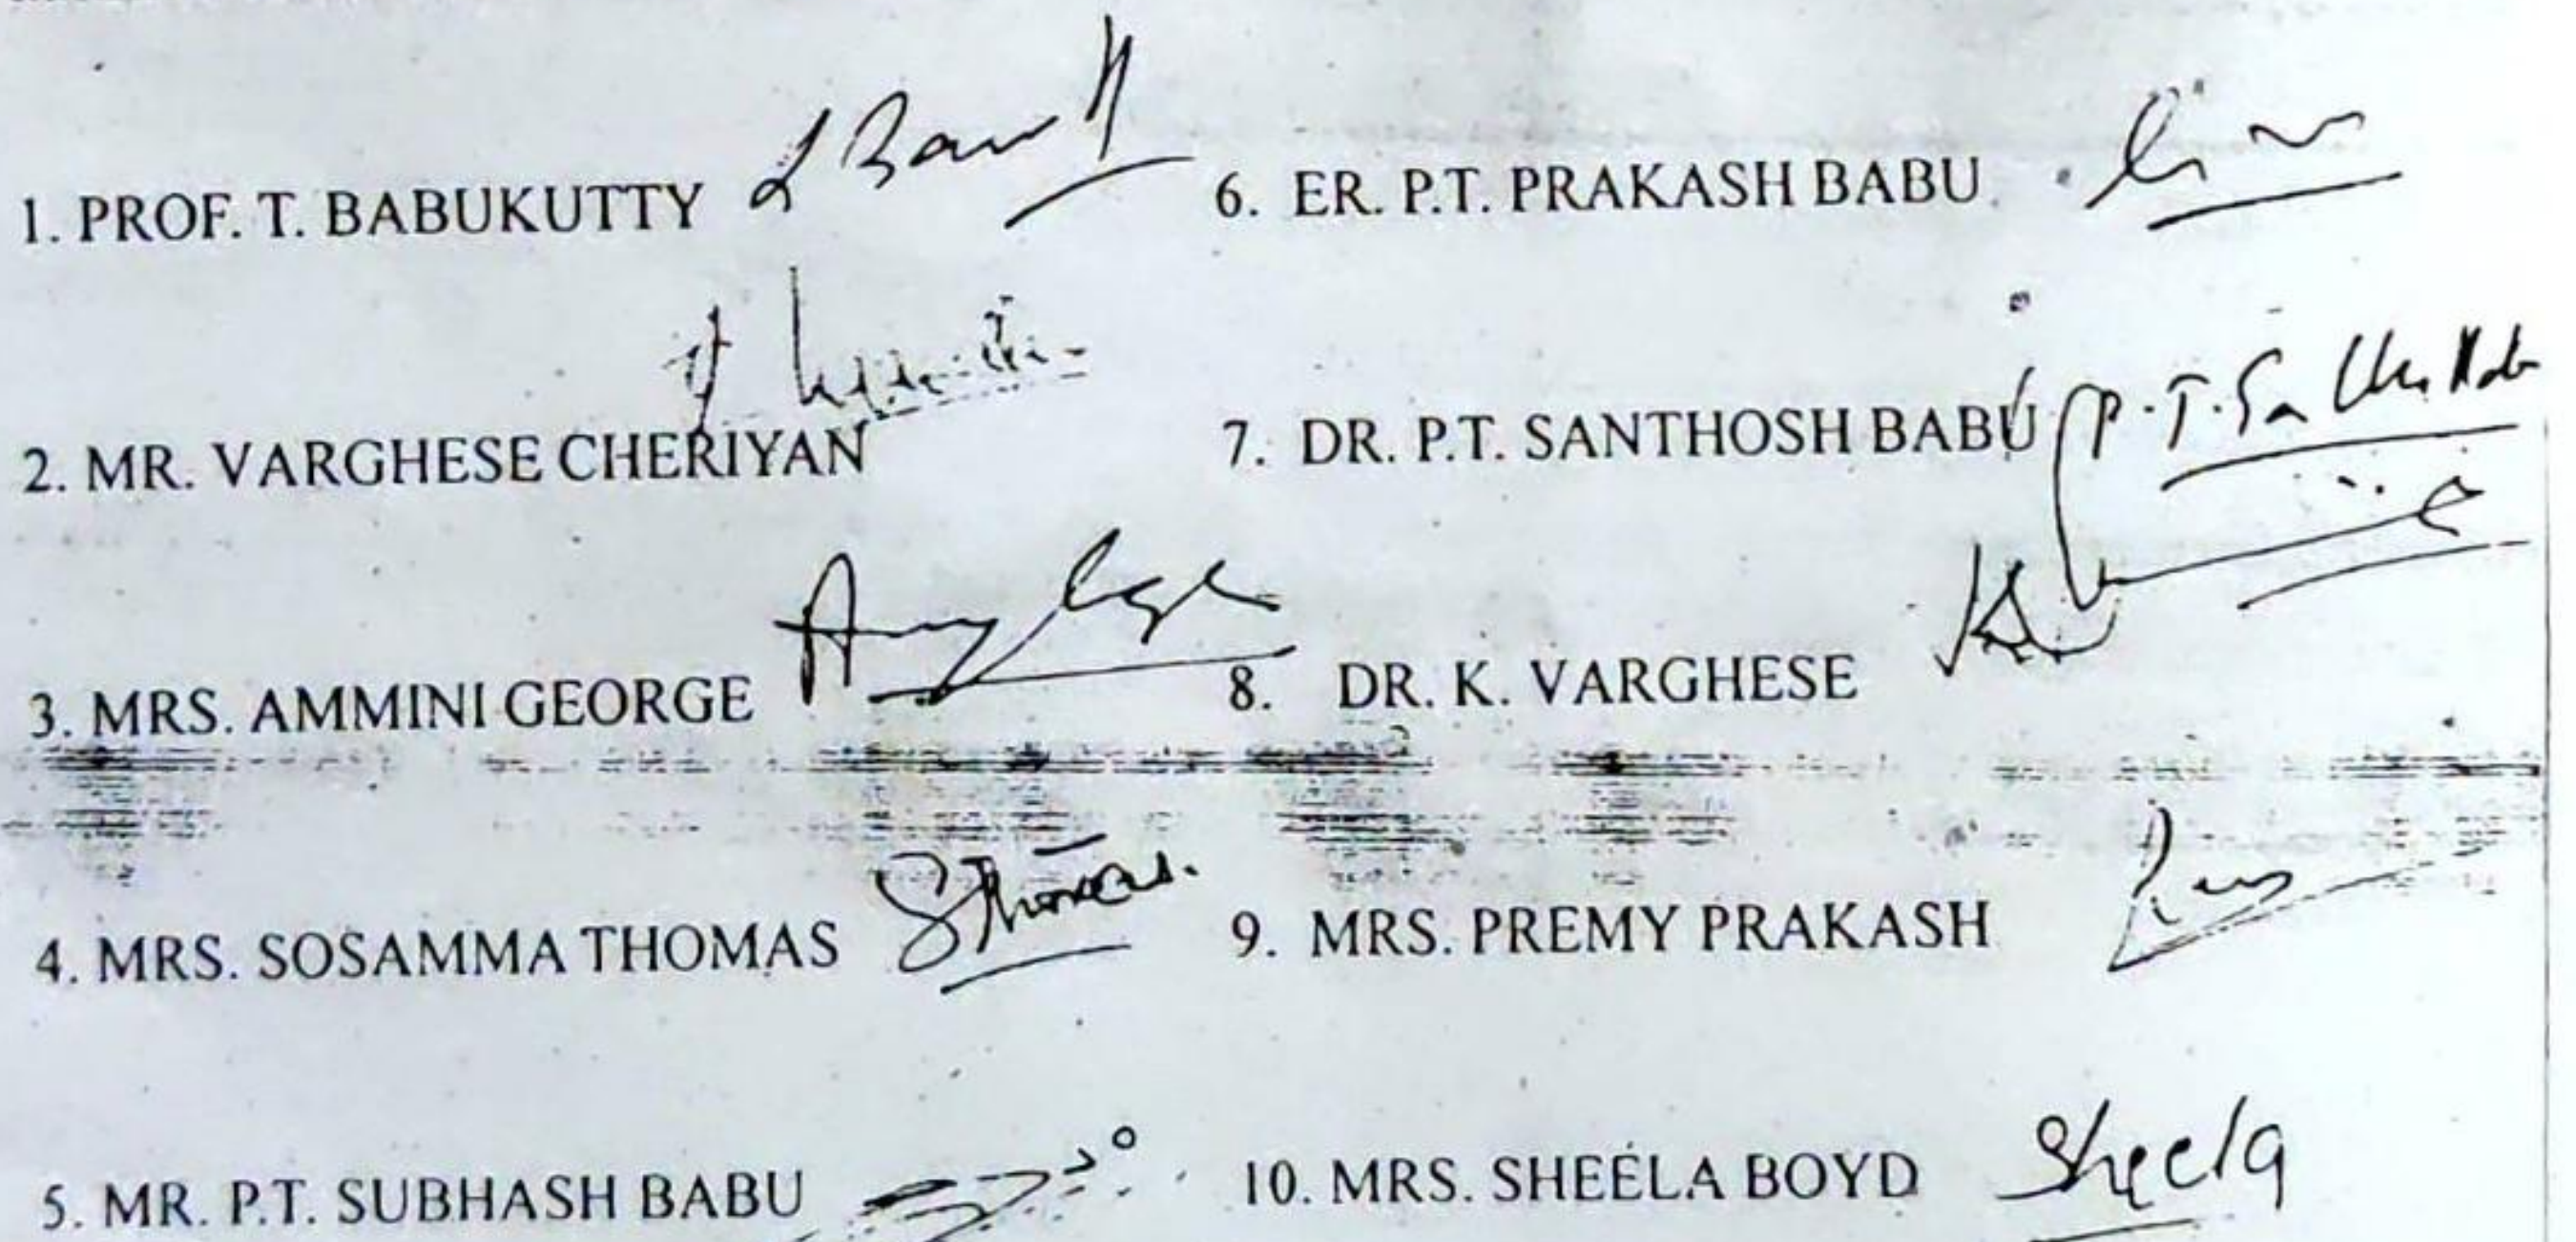 1. PROF. T. BABUKUTTY
2. MR. VARGHESE CHERIYAN
3. MRS. AMMINI GEORGE
4. MRS. SOSAMMA THOMAS SThomas.
5. MR. P.T. SUBHASH BABU
6. ER. P.T. PRAKASH BABU
7. DR. P.T. SANTHOSH BABU P.T.
8. DR. K. VARGHESE
9. MRS. PREMY PRAKASH
10. MRS. SHEELA BOYD Sheela